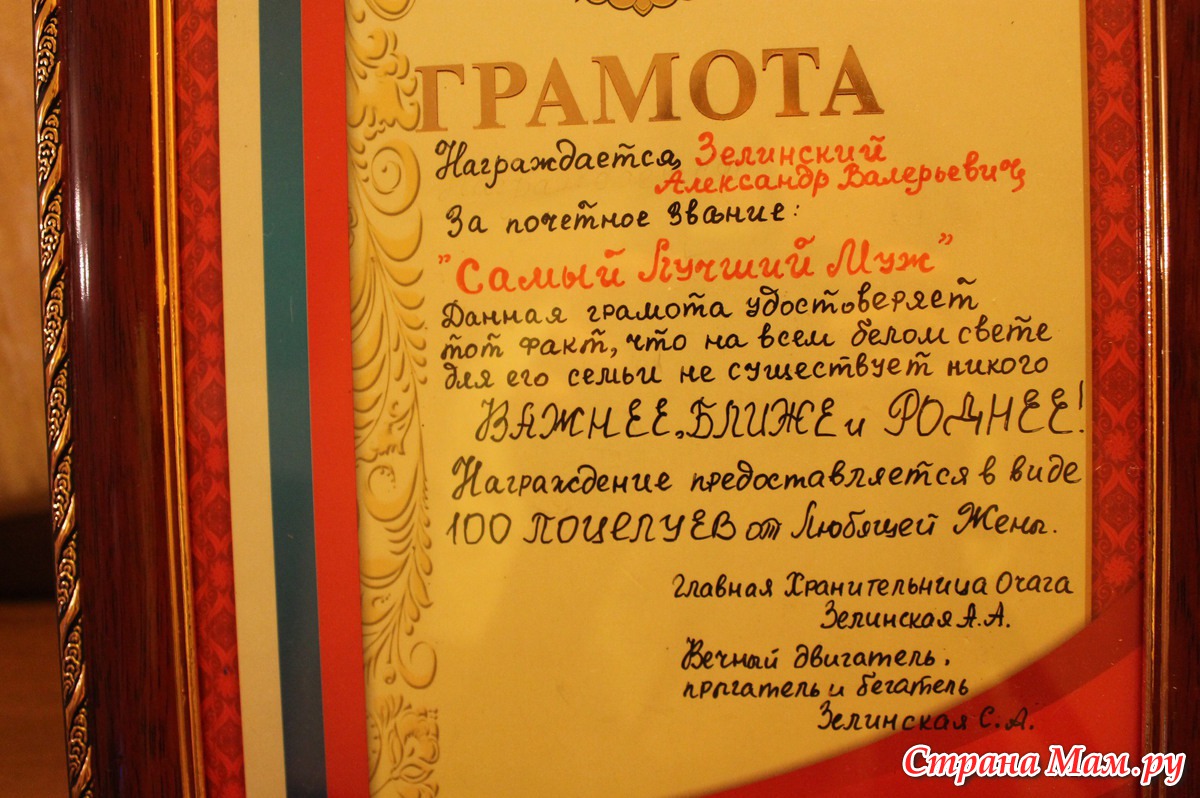 ГРАМОТА
Награждается, Зелинский
Александр Валерьевич
За почетное звание:
"Самый Лучший Муж"
Данная грамота удостоверяет
тот факт, что на всем белом свете
для его семьи не существует никого
ВАЖНЕЕ, БЛИЖЕ и РОДНЕЕ!
Награждение предоставляется в виде
100 ПОЦЕЛУЕВ от Любящей Жены.
Главная Хранительница Очага
Зелинская А.А.
Вечный двигатель,
прыгатель и бегатель
Зелинская С.А.
Страна Мам.ру